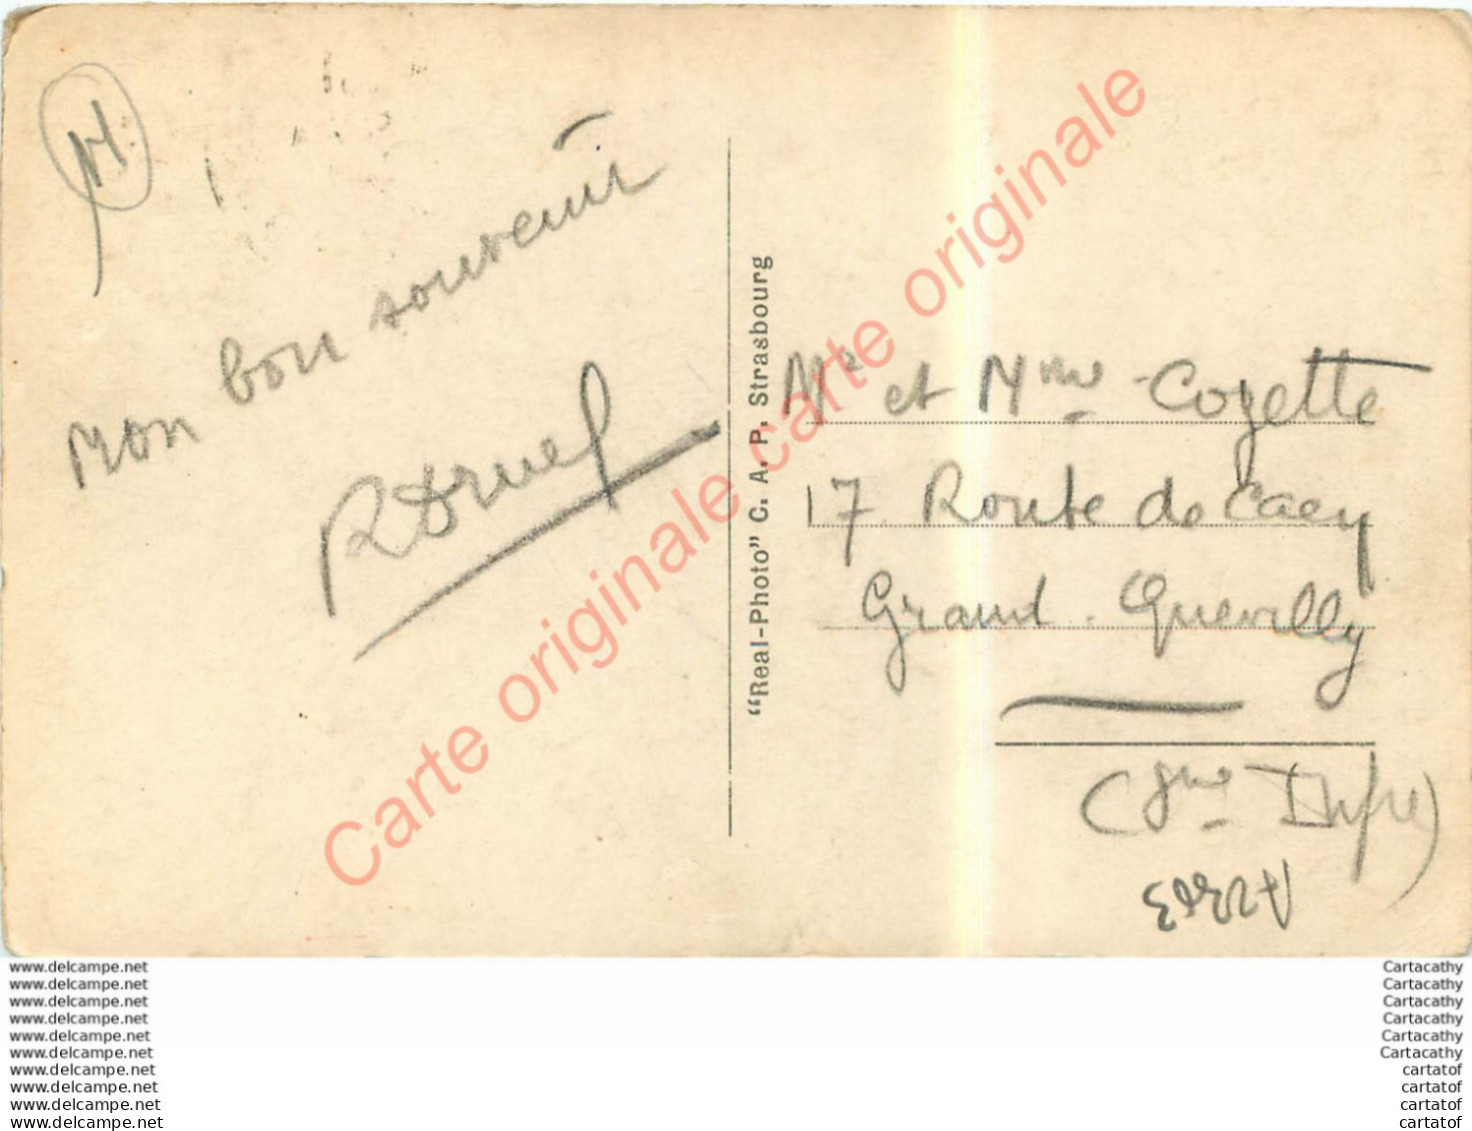 Mon bon souvenir
"Real-Photo" C. A. P. Strasbourg
Mr et Mme Cozette
17 Route de Caen
Grand-Quevilly
(Sne Infre)
Carte originale carte originale
www.delcampe.net
www.delcampe.net
www.delcampe.net
www.delcampe.net
www.delcampe.net
www.delcampe.net
www.delcampe.net
www.delcampe.net
www.delcampe.net
www.delcampe.net
Cartacathy
Cartacathy
Cartacathy
Cartacathy
Cartacathy
Cartacathy
cartatof
cartatof
cartatof
cartatof